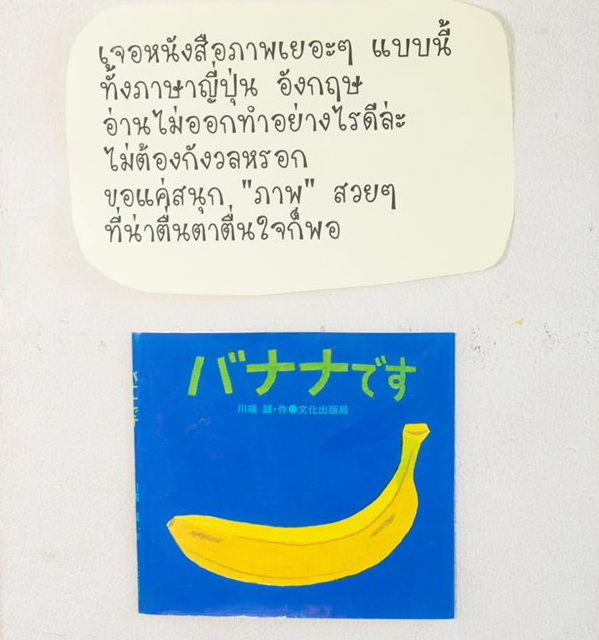 เจอหนังสือภาพเยอะๆ แบบนี้
ทั้งภาษาญี่ปุ่น อังกฤษ
อ่านไม่ออกทำอย่างไรดีล่ะ
ไม่ต้องกังวลหรอก
ขอแค่สนุก "ภาพ" สวยๆ
ที่น่าตื่นตาตื่นใจก็พอ
バナナです
川端 誠・作●文化出版局